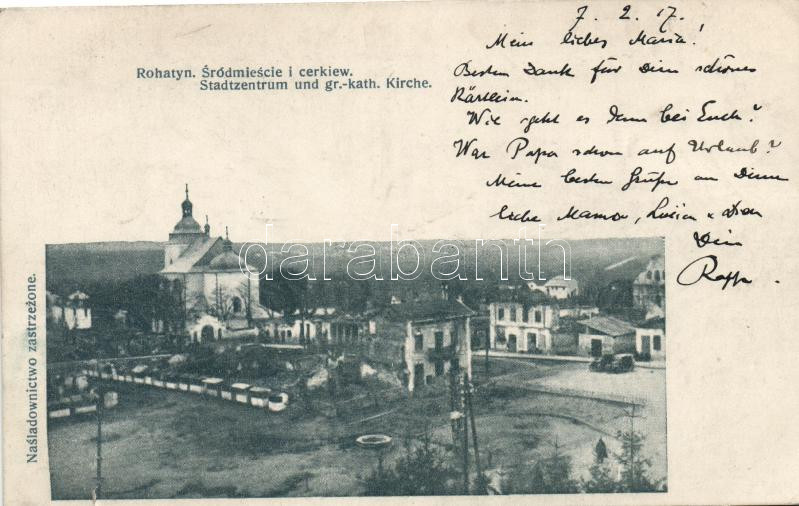 7. 2. 17.
Mein liebes Maria!
Besten Dank für Dein schönes
Kärtlein.
Wie geht es denn bei Euch?
War Papa schon auf Urlaub?
Meine besten Grüße an Deine
liebe Mama, Luisin & Dich
Dein
Rapp.
Rohatyn. Śródmieście i cerkiew.
Stadtzentrum und gr.-kath. Kirche.
Naśladownictwo zastrzeżone.
darabanth